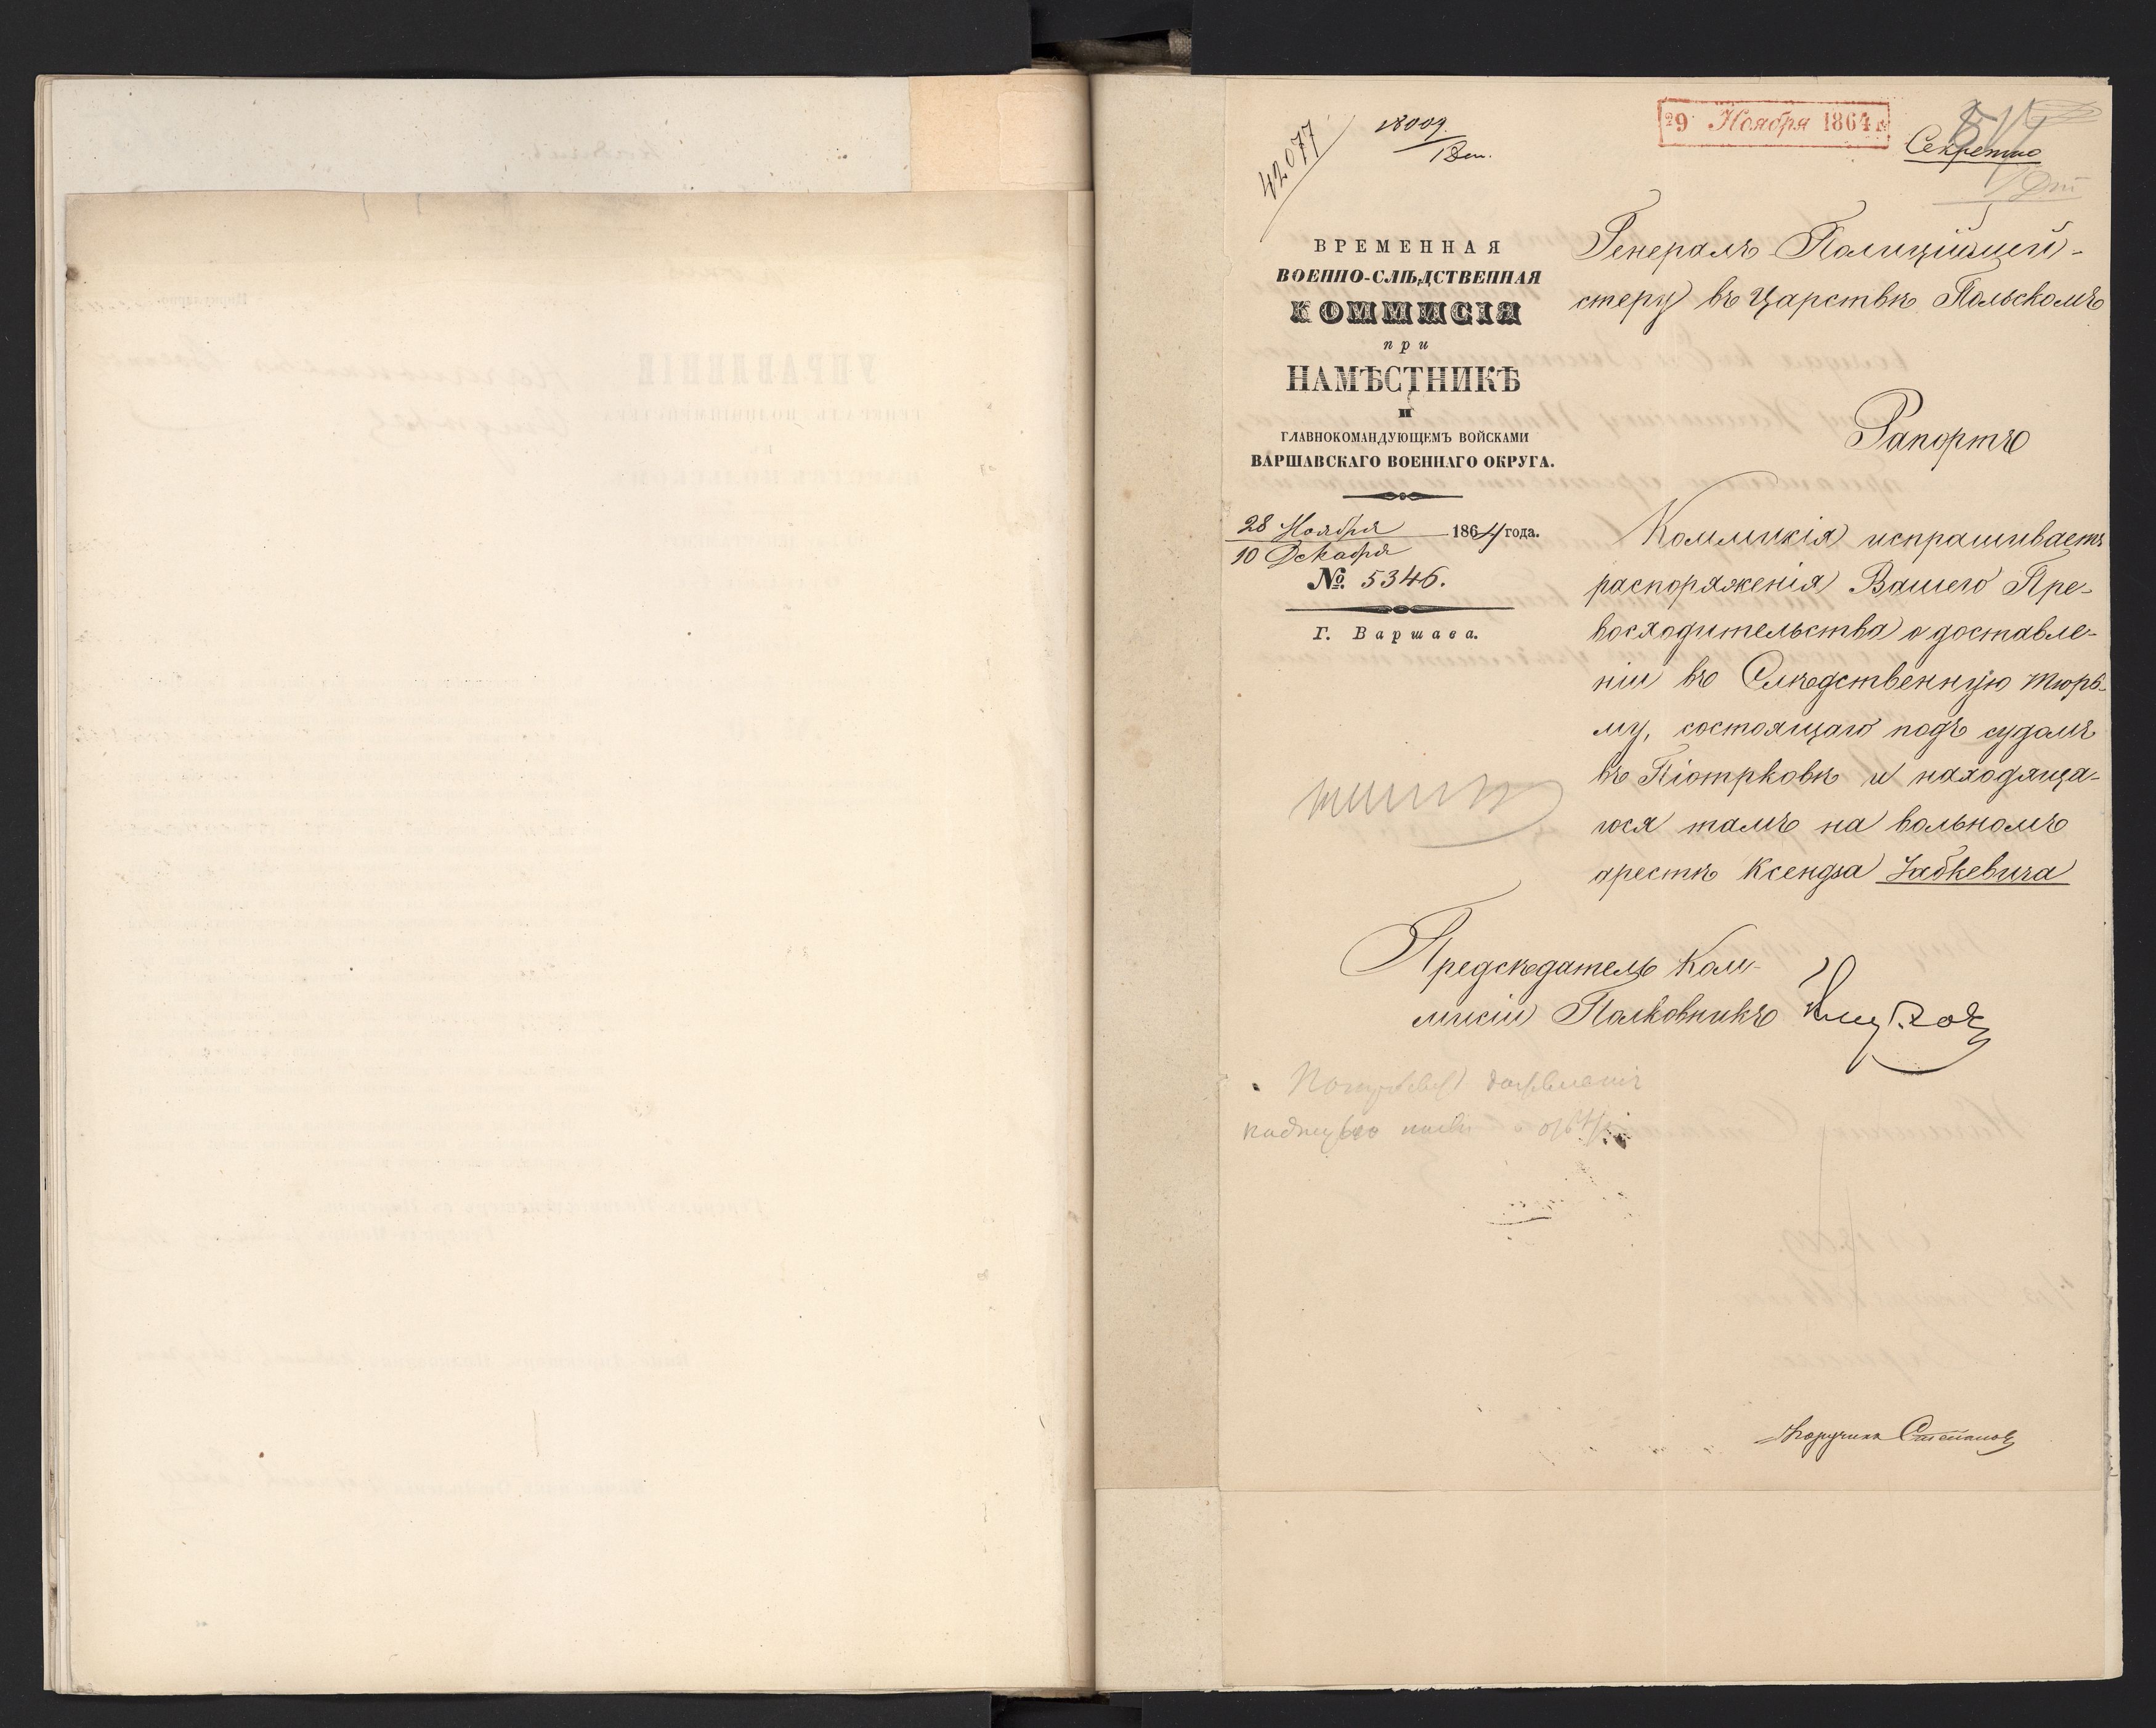 42077
18009
29 Ноября 1864
Секретно
ВРЕМЕННАЯ
ВОЕННО-СЛѢДСТВЕННАЯ
КОММИСІЯ
при
НАМѢСТНИКѢ
И
ГЛАВНОКОМАНДУЮЩЕМЪ ВОЙСКАМИ
ВАРШАВСКАГО ВОЕННАГО ОКРУГА.
28 Ноября
10 Декабря
1864 года.
№ 5346.
Г. Варшава.
Генералъ Полиціймей-
стеру въ Царствѣ Польскомъ
Рапортъ
Коммисія испрашиваетъ
распоряженія Вашего Пре-
восходительства о доставле-
ніи въ Слѣдственную тюрь-
му, состоящаго подъ судомъ
въ Піотрковѣ и находяща-
гося тамъ на вольномъ
арестѣ Ксендза Забкевича
Предсѣдатель Ком-
мисіи Полковникъ
Поручикъ Степановъ